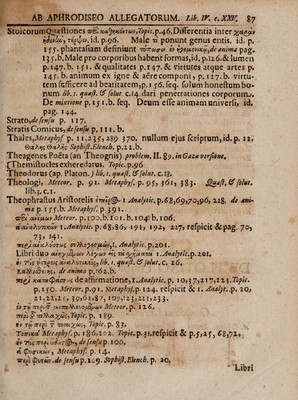 AB APHRODISEO ALLEGATORUM. Lib. IV. c. XXV. 87
Stoicorum Quæstiones περὶ καθηκόντων, Topic. p. 46. Differentia inter
id. p. 96. Male n ponunt genus entis. id. p.
155. phantasiam definiunt de anima pag.
135. b. Male pro corporibus habent formas, id. p. 16. & lumen
p. 147. b. 151. & qualitates p. 147. & virtutes atque artes p.
145. b. animum ex igne & aëre componi, p. 127. b. virtu-
tem sufficere ad beatitatem, p. 156. seq. solum honestum bo-
num lib. 1. quæst. & solut. c. 14. dari penetrationem corporum.
De mixtione p. 151. b. seq. Deum esse animam universi, id.
pag. 144.
Strato, de sensu p. 117.
Stratis Comicus, de sensu p. 111. b.
Thales, Metaphys. p. 11, 235, 289 370. nullum ejus scriptum, id. p. 11.
Θαλῆς Θαλῆς Sophist. Elench. p. 22. b.
Theagenes Poëta (an Theognis) problem. II. 89. in Gaza versione.
[Themistocles exheredatus. Topic. p. 96.
Theodorus (ap. Platon.) lib. 1. quæst. & solut. c. 13.
Theologi, Meteor. p. 91. Metaphys. p. 95, 361, 383. Quæst. &
solut. lib. 5. c. 1.
Theophrastus Aristotelis 1. Analytic. p. 68, 69, 70, 96, 228. de ani-
ma p. 155. b. Metaphys. p. 391.
περὶ ἀνέμων Meteor. p. 100. b. 101. b. 104. b. 106.
ἀναλυτικῶν 1. Analytic. p. 68, 86, 191, 192, 217. respicit & pag. 70,
73, 141.
περὶ ἀναλύσεως συλλογισμῶν, 1. Analytic. p. 201.
Libri duo 1. Analytic. p. 201.
lib. 1. quæst. & solut. c. 26.
de anima p. 162. b.
περὶ καταφάσεως de affirmatione, 1. Analytic. p. 10, 37, 217, 123, Topic.
p. 150. Meteor. p. 91. Metaphys. p. 124. respicit & 1. Analyt. p. 20,
21, 22, 25, 39, 61, 87, 109, 123, 225, 233.
Meteor. p. 126.
Topic. p. 189.
Topic. p. 83.
Τοπικὰ Metaphys. p. 186. 202. Topic. p. 31. respicit & p. 5, 25, 68, 72,
de sensu p. 106.
Metaphys. p. 14.
περὶ φυτῶν. de sensu p. 109. Sophist. Elench. p. 20,
Libri